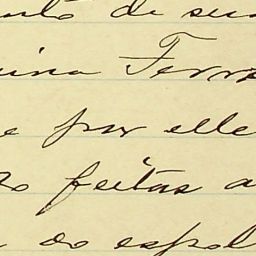 de seu
ina Ferr
e por elle
feitas a
do espol